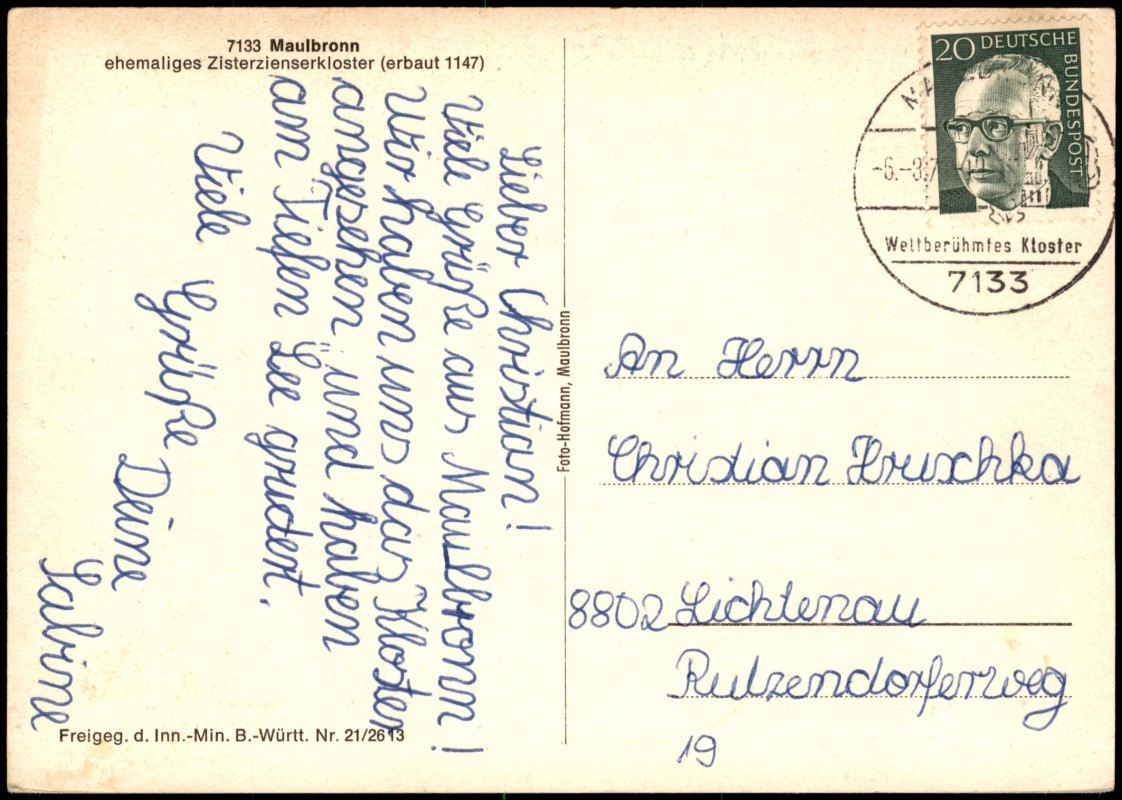 7133 Maulbronn
ehemaliges Zisterzienserkloster (erbaut 1147)
Lieber Christian!
Viele Grüße aus Maulbronn!
Wir haben uns das "Kloster
angesehen" und haben
am Tiefen See grudert.
Viele
Grüße
Deine
Sabine
Freigeg. d. Inn.-Min. B.-Württ. Nr. 21/2613
Foto-Hofmann, Maulbronn
20 DEUTSCHE
BUNDESPOST
-6.-3.7
Weltberühmtes Kloster
7133
An Herrn
Christian Hruschka
8802 Lichtenau
Rutzendorferweg
19